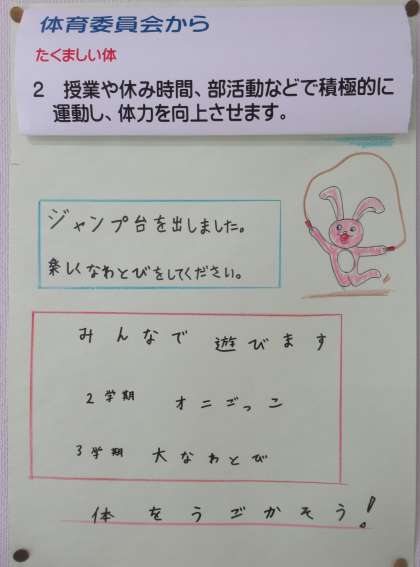 体育委員会から
たくましい体
2 授業や休み時間、部活動などで積極的に
運動し、体力を向上させます。
ジャンプ台を出しました。
楽しくなわとびをしてください。
みんなで 遊びます
2学期 オニごっこ
3学期 大なわとび
体をうごかそう!